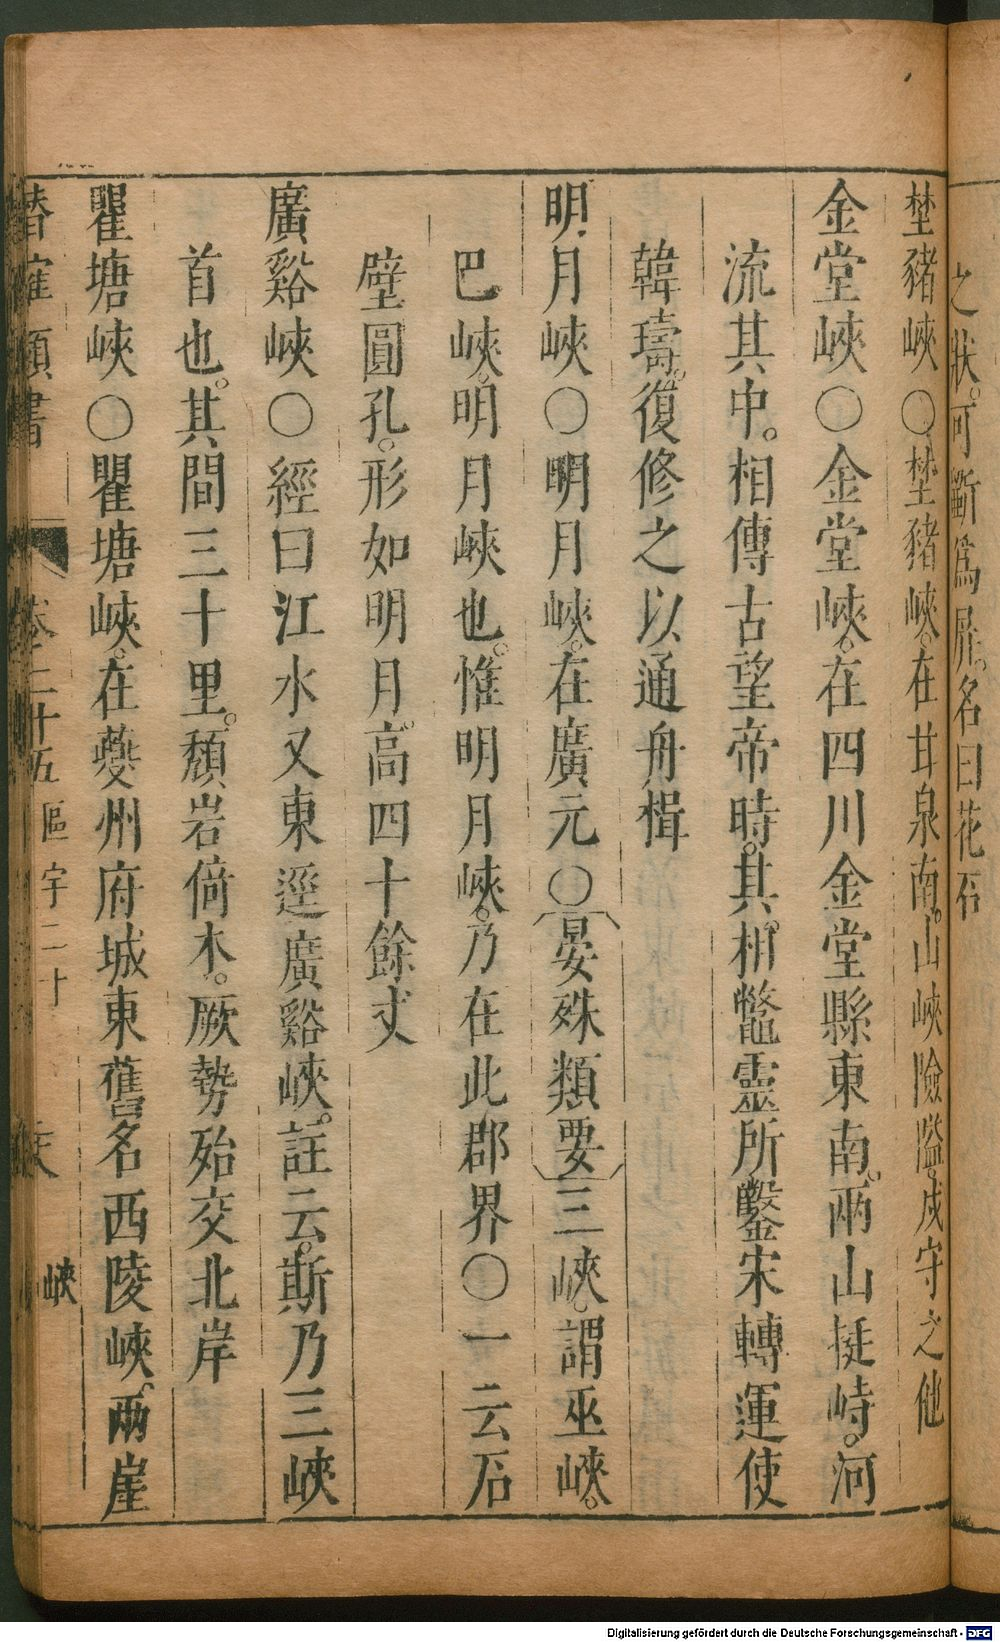 之狀。可斷爲屛。名曰花石
埜豬峽〇埜豬峽。在甘泉南。山峽險隘。戍守之他
金堂峽〇金堂峽。在四川金堂縣東南。兩山挺峙。河
流其中。相傳古望帝時。其相鼈靈所鑿宋轉運使
韓璹。復修之以通舟楫
明月峽〇明月峽。在廣元〇晏殊類要三峽。謂巫峽。
巴峽。明月峽也。惟明月峽。乃在此郡界〇一云石
壁圓孔。形如明月。高四十餘丈
廣谿峽〇經曰江水又東逕廣谿峽。註云。斯乃三峽
首也。其間三十里。頹岩倚木。厥勢殆交北岸
瞿塘峽〇瞿塘峽。在夔州府城東舊名西陵峽。兩崖
潛確類書 卷二十五 區宇二十 峽
Digitalisierung gefördert durch die Deutsche Forschungsgemeinschaft - DFG